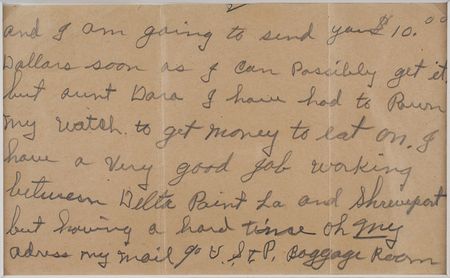 2
and I am going to send you $10.00
Dollars soon as I can Possibly get it
but aunt Dora I have had to Pawn
my watch to get money to eat on. I
have a very good job working
between Delta Point La and Shreveport
but having a hard time oh my
adress my mail go V. S. & P. Baggage Room